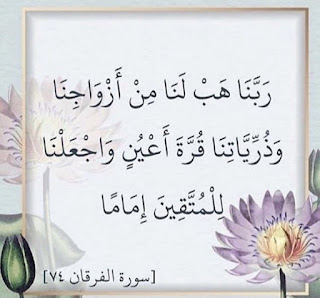 رَبَّنَا هَبْ لَنَا مِنْ أَزْوَاجِنَا
وَذُرِّيَّاتِنَا قُرَّةَ أَعْيُنٍ وَاجْعَلْنَا
لِلْمُتَّقِينَ إِمَامًا
[سورة الفرقان ٧٤]